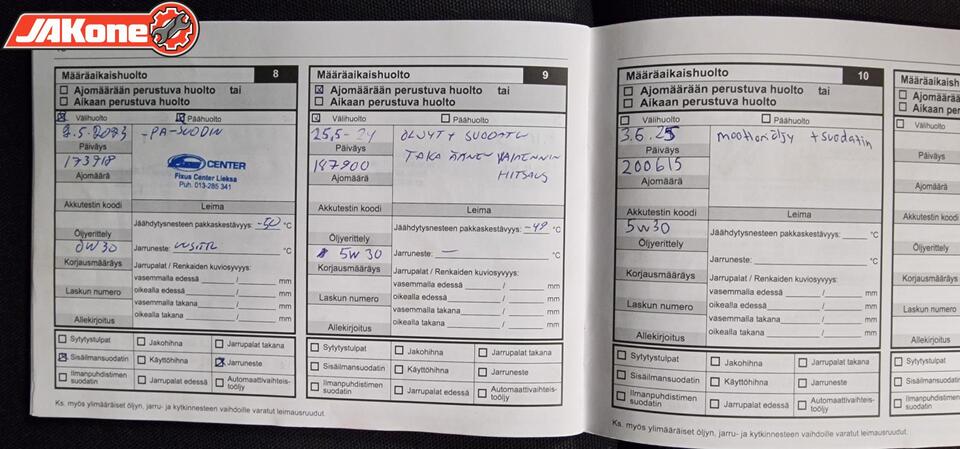 JAKone
Määräaikaishuolto 8
Ajomäärään perustuva huolto tai
Aikaan perustuva huolto
Välihuolto Päähuolto
2.5.2023 -PA-SUODIN
Päiväys
173918
CENTER
Fixus Center Lieksa
Puh. 013-285 341
Ajomäärä
Akkutestin koodi Leima
Jäähdytysnesteen pakkaskestävyys: -50 °C
Öljyerittely
0W30
Jarruneste: °C
Korjausmääräys
Jarrupalat / Renkaiden kuviosyvyys:
vasemmalla edessä / mm
Laskun numero
oikealla edessä / mm
vasemmalla takana / mm
Allekirjoitus
oikealla takana / mm
Sytytystulpat Jakohihna Jarrupalat takana
Sisäilmansuodatin Käyttöhihna Jarruneste
Ilmanpuhdistimen suodatin Jarrupalat edessä Automaattivaihteis-
tööljy
Ks. myös ylimääräiset öljyn, jarru- ja kytkinnesteen vaihdoille varatut leimausruudut.
Määräaikaishuolto 9
Ajomäärään perustuva huolto tai
Aikaan perustuva huolto
Välihuolto Päähuolto
25.5-24 ÖLJYT + SUODATIN
Päiväys
TAKA ÄÄNEN VAIMENNIN
187900
HITSAUS
Ajomäärä
Akkutestin koodi Leima
Jäähdytysnesteen pakkaskestävyys: -49 °C
Öljyerittely
5W30
Jarruneste: — °C
Korjausmääräys
Jarrupalat / Renkaiden kuviosyvyys:
vasemmalla edessä / mm
Laskun numero
oikealla edessä / mm
vasemmalla takana / mm
Allekirjoitus
oikealla takana / mm
Sytytystulpat Jakohihna Jarrupalat takana
Sisäilmansuodatin Käyttöhihna Jarruneste
Ilmanpuhdistimen suodatin Jarrupalat edessä Automaattivaihteis-
tööljy
Määräaikaishuolto 10
Ajomäärään perustuva huolto tai
Aikaan perustuva huolto
Välihuolto Päähuolto
3.6.25 moottoriöljy + suodatin
Päiväys
200615
Ajomäärä
Akkutestin koodi Leima
5W30
Jäähdytysnesteen pakkaskestävyys: °C
Öljyerittely
Jarruneste: °C
Korjausmääräys
Jarrupalat / Renkaiden kuviosyvyys:
vasemmalla edessä / mm
Laskun numero
oikealla edessä / mm
vasemmalla takana / mm
Allekirjoitus
oikealla takana / mm
Sytytystulpat Jakohihna Jarrupalat takana
Sisäilmansuodatin Käyttöhihna Jarruneste
Ilmanpuhdistimen suodatin Jarrupalat edessä Automaattivaihteis-
tööljy
Ks. myös ylimääräiset öljyn, jarru- ja kytkinnesteen vaihdoille varatut leimausruudut.
Määräaikaish
Ajomäärään
Aikaan perus
Välihuolto
Päiväys
Ajomäärä
Akkutestin koodi
Öljyerittely
Korjausmääräys
Laskun numero
Allekirjoitus
Sytytystulpat
Sisäilmansuodatin
Ilmanpuhdistimen
suodatin